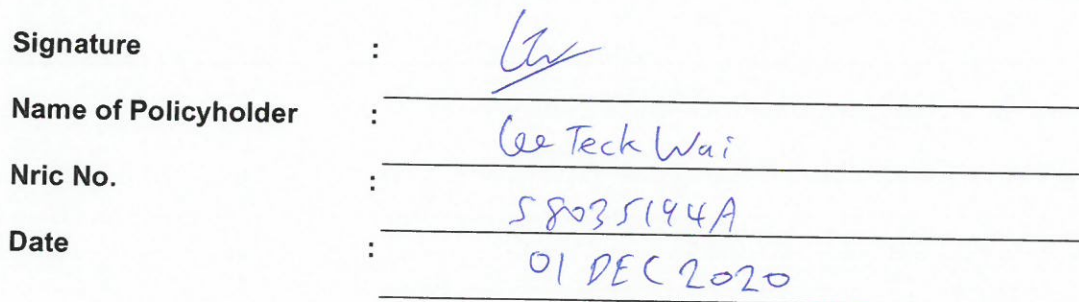 Signature :
Name of Policyholder : Lee Teck Wai
Nric No. : S8035194A
Date : 01 DEC 2020